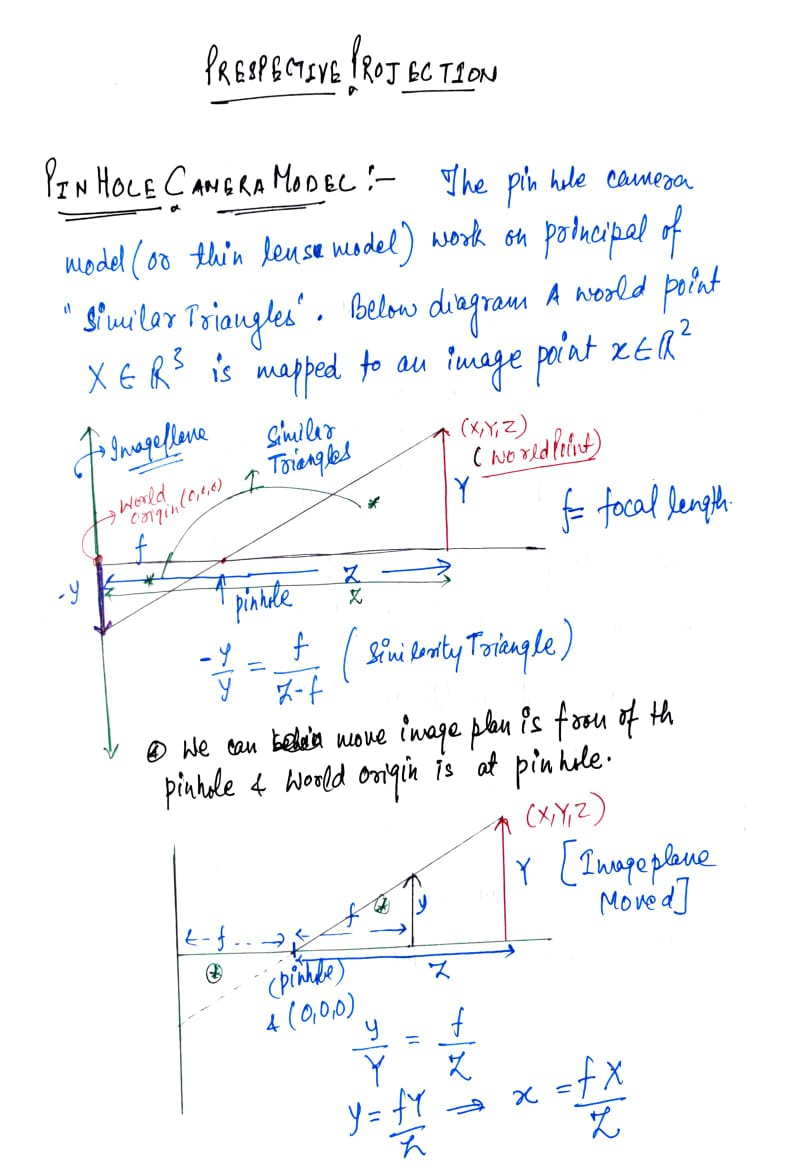 PRESPECTIVE PROJECTION
PIN HOLE CAMERA MODEL :- The pin hole camera
model (or thin lense model) work on principal of
"Similar Triangles". Below diagram A world point
X ∈ R³ is mapped to an image point x ∈ R²
Image plane
Similar
Triangles
(X,Y,Z)
(World Point)
World
origin (0,0,0)
Y
f = focal length.
f
Z
-y
pinhole
Z
-y/Y = f/Z-f (Similarity Triangle)
We can move image plan is fron of th
pinhole & World origin is at pinhole.
(X,Y,Z)
Y [Image plane
Moved]
f
y
←-f..→
Z
(pinhole)
& (0,0,0)
y/Y = f/Z
y = fY/Z ⇒ x = fX/Z